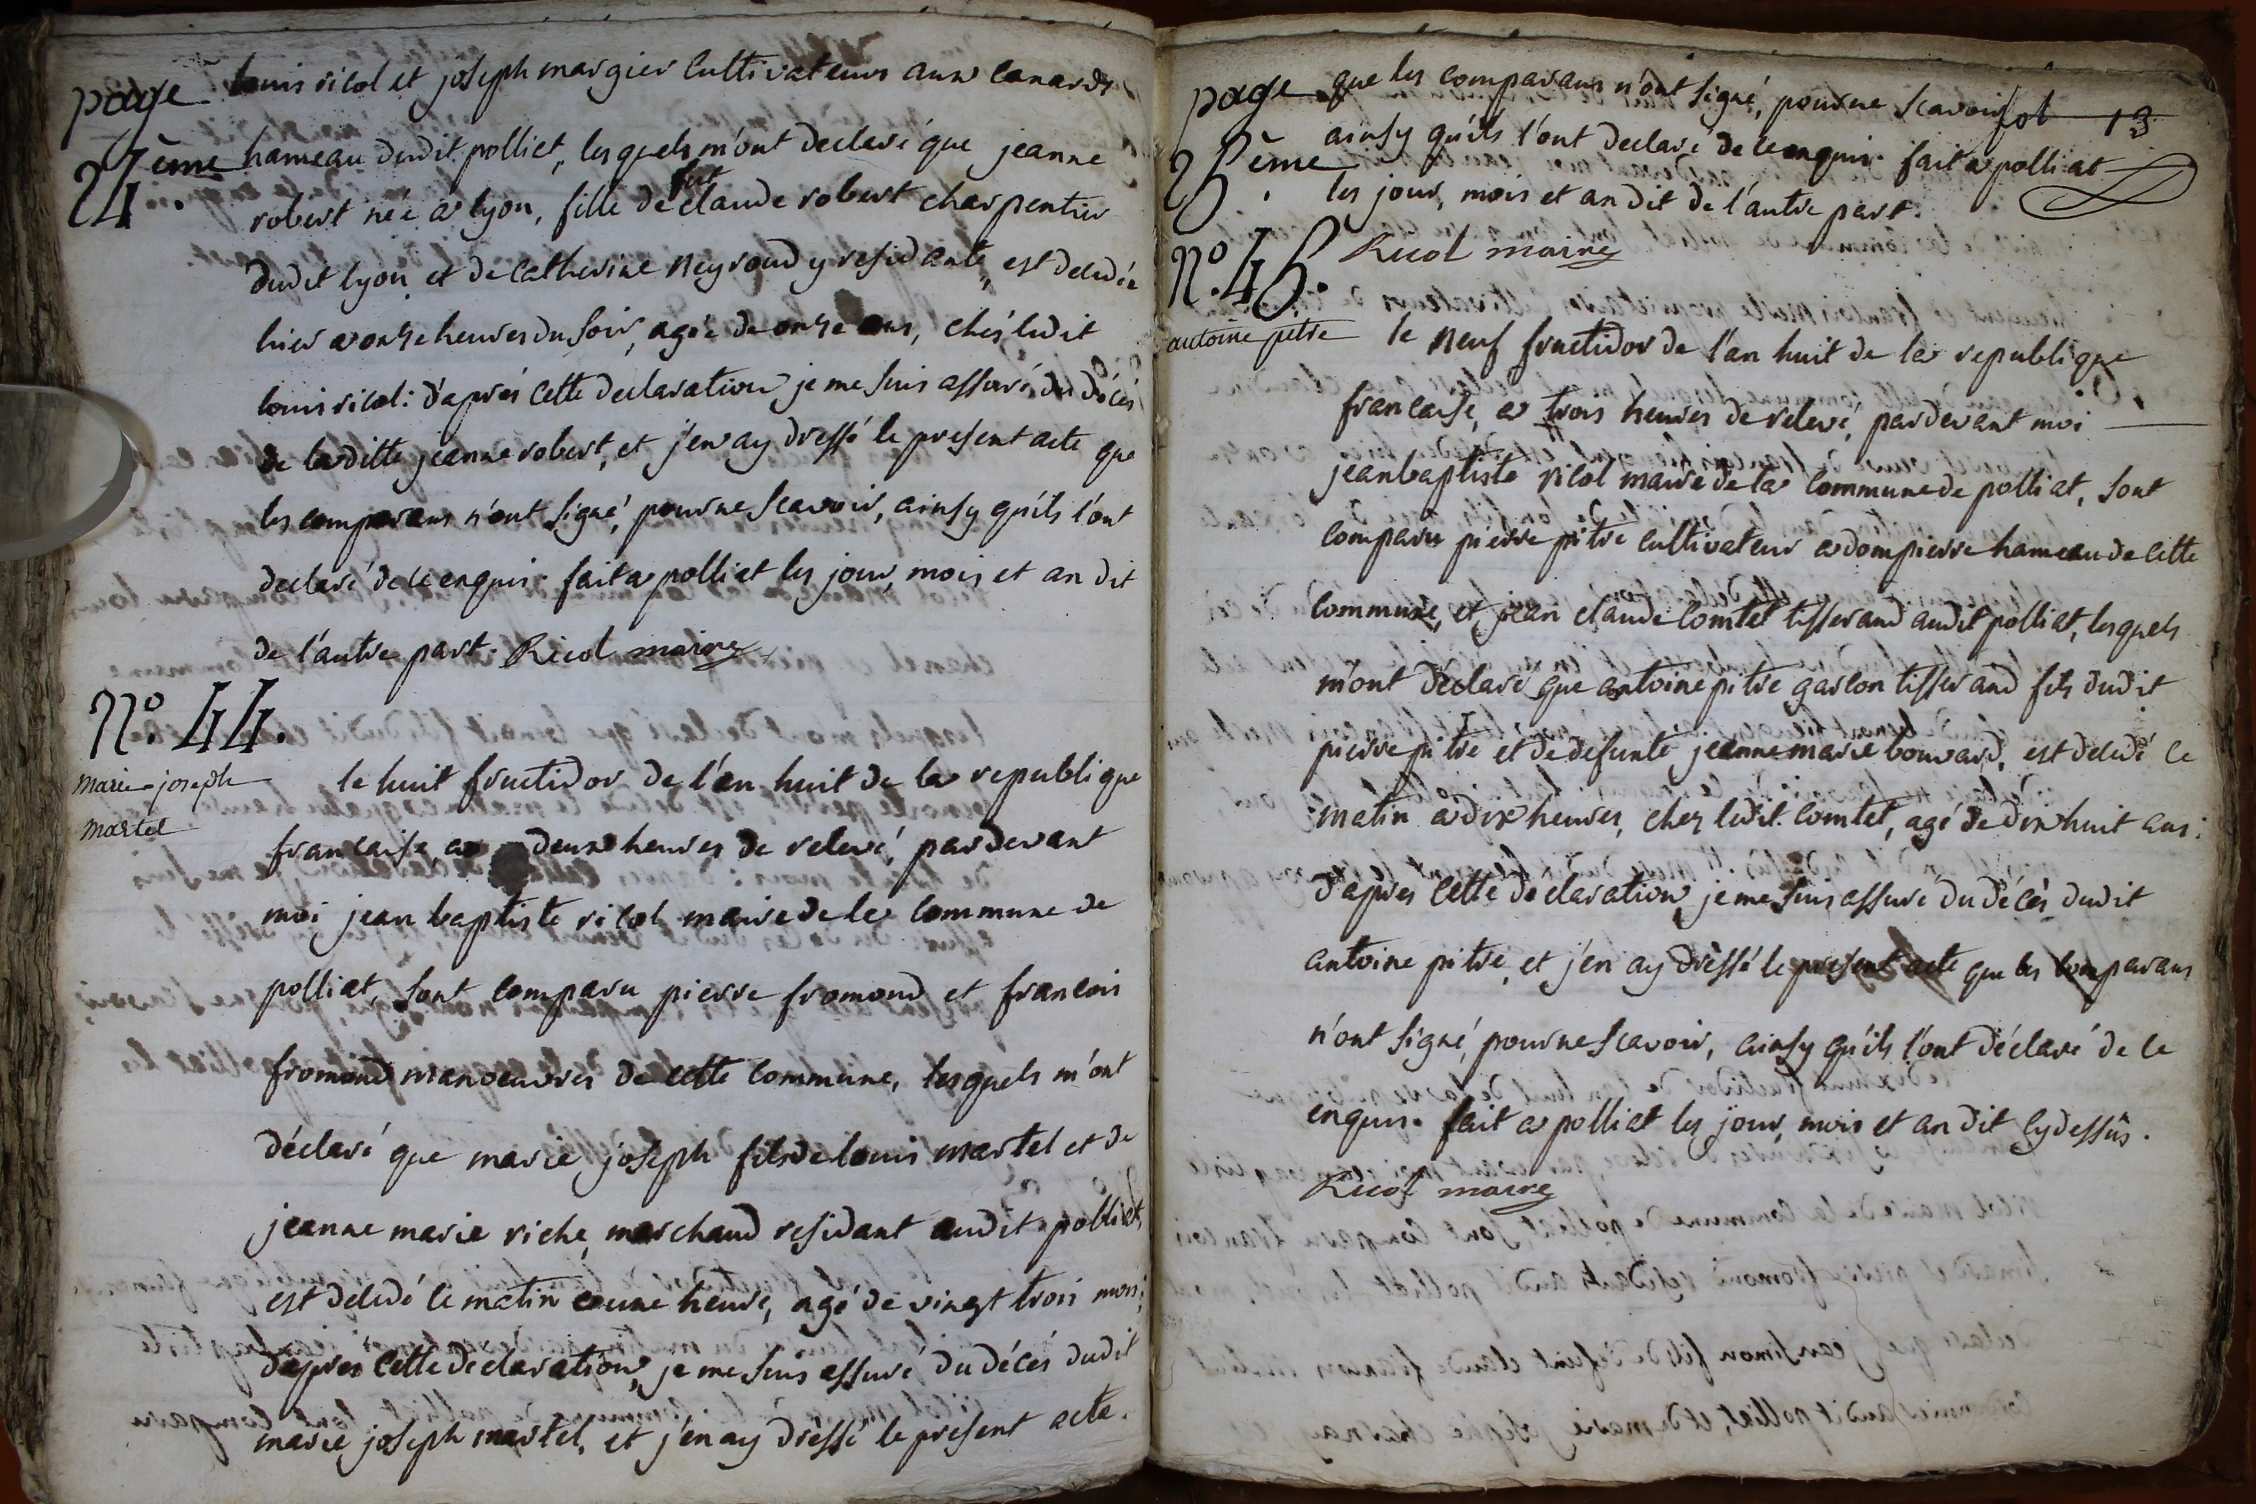 page
24ème.
louis ricol et joseph margier cultivateurs aux canards
hameau dudit polliat, lesquels m'ont declaré que jeanne
robert née a lyon, fille de feu claude robert charpentier
dudit lyon et de catherine neyroud y residante, est decedée
hier a onze heures du soir, agée de onze ans, chés ledit
louis ricol: d'aprés cette declaration je me suis assuré du décés
de laditte jeanne robert, et j'en ay dressé le present acte que
les comparans n'ont signé, pour ne scavoir, ainsy qu'ils l'ont
declaré de ce enquis. fait a polliat les jour, mois et an dit
de l'autre part. Ricol maire
N.º 44.
marie-joseph
martel
le huit fructidor de l'an huit de la republique
francaise, a deux heures de relevé, pardevant
moi jean baptiste ricol maire de la commune de
polliat, sont comparu pierre fromond et francois
fromond manoeuvres de cette commune, lesquels m'ont
déclaré que marie joseph fils de louis martel et de
jeanne marie riche, marchand residant audit polliat,
est decedé ce matin a une heure, agé de vingt trois mois;
d'aprés cette declaration, je me suis assuré du décés dudit
marie joseph martel, et j'en ay dréssé le present acte.
page
25ème.
fol 13
que les comparans n'ont signé, pour ne scavoir
ainsy qu'ils l'ont declaré de ce enquis. fait a polliat
les jour, mois et an dit de l'autre part.
Ricol maire
N.º 45.
antoine pitre
le neuf fructidor de l'an huit de la republique
francaise, a trois heures de relevé, pardevant moi
jean baptiste ricol maire de la commune de polliat, sont
comparu pierre pitre cultivateur a dompierre hameau de cette
commune, et jean claude comtet tisserand audit polliat, lesquels
m'ont déclaré que antoine pitre garcon tisserand fils dudit
pierre pitre et de defunte jeanne marie bouvard, est decedé ce
matin a dix heures, chez ledit comtet, agé de dix huit ans:
d'aprés cette declaration, je me suis assuré du décés dudit
antoine pitre, et j'en ay dréssé le present acte que les comparans
n'ont signé, pour ne scavoir, ainsy qu'ils l'ont déclaré de ce
enquis. fait a polliat les jour, mois et an dit cy dessus.
Ricol maire